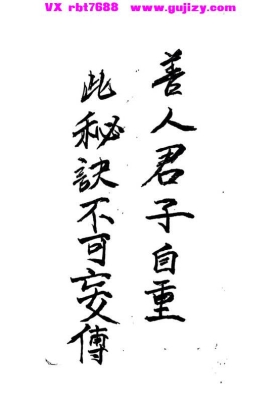 VX rbt7688 www.gujizy.com
善人君子自重
此秘訣不可妄傳